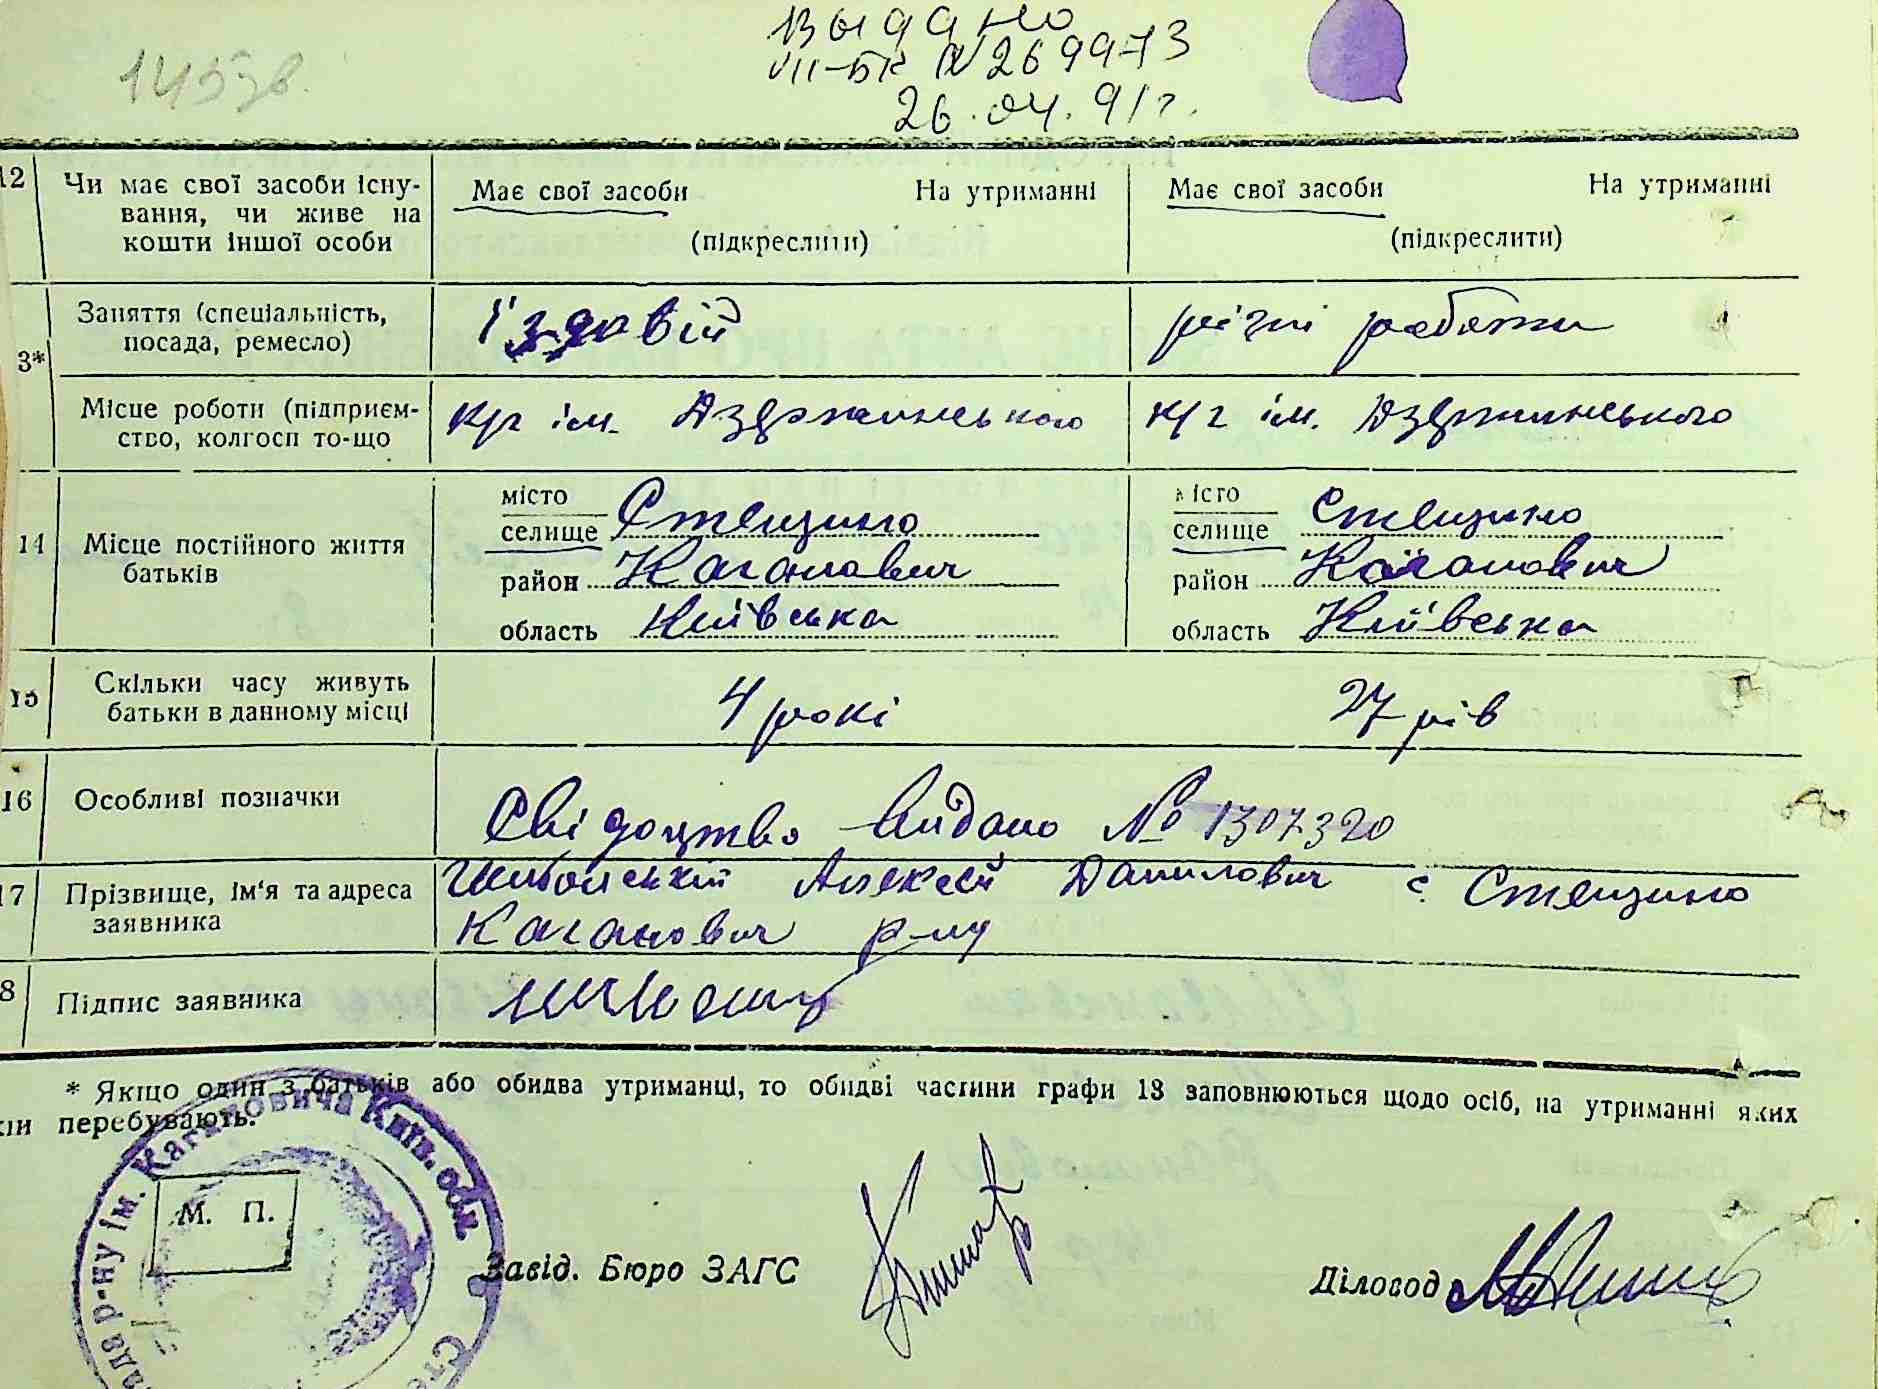 Выдано
VII-БК № 269973
26.04.91г.
12
Чи має свої засоби існу-
вання, чи живе на
кошти іншої особи
Має свої засоби На утриманні
(підкреслити)
Має свої засоби На утриманні
(підкреслити)
3*
Заняття (спеціальність,
посада, ремесло)
Їздовій
різні роботи
Місце роботи (підприєм-
ство, колгосп то-що
к/г ім. Дзержинського
к/г ім. Дзержинського
14
Місце постійного життя
батьків
місто
селище Стещино
район Каганович
область Київська
місто
селище Стещино
район Каганович
область Київська
15
Скільки часу живуть
батьки в данному місці
4 рокі
27 рів
16
Особливі позначки
Свідоцтво видано № 1307320
17
Прізвище, ім'я та адреса
заявника
Алексей Данилович с. Стещино
Каганович р-ну
8
Підпис заявника
* Якщо один з батьків або обидва утриманці, то обидві частини графи 13 заповнюються щодо осіб, на утриманні яких
перебувають.
р-ну ім. Кагановича Київ. обл.
М. П.
Завід. Бюро ЗАГС
Діловод